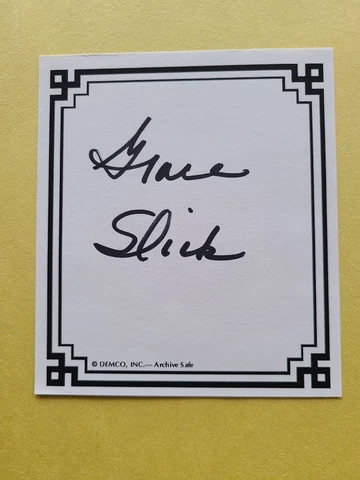 Grace
Slick
© DEMCO, INC.— Archive Safe